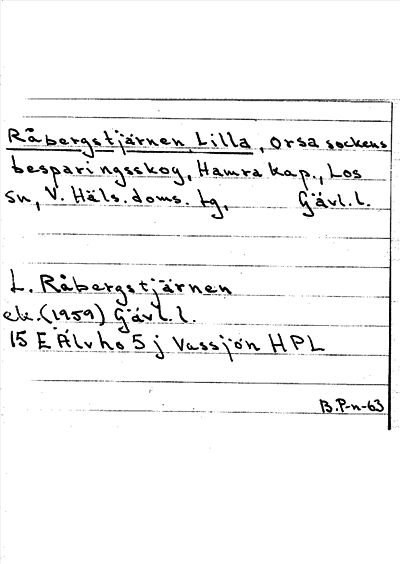 Råbergstjärnen, Lilla, Orsa sockens
besparingsskog, Hamra kap., Los
sn, V. Häls. doms. tg, Gävl.l.
L. Råbergstjärnen
ek. (1959) Gävl.l.
15 E Älvho 5 j Vassjön HPL
B.P-n-63